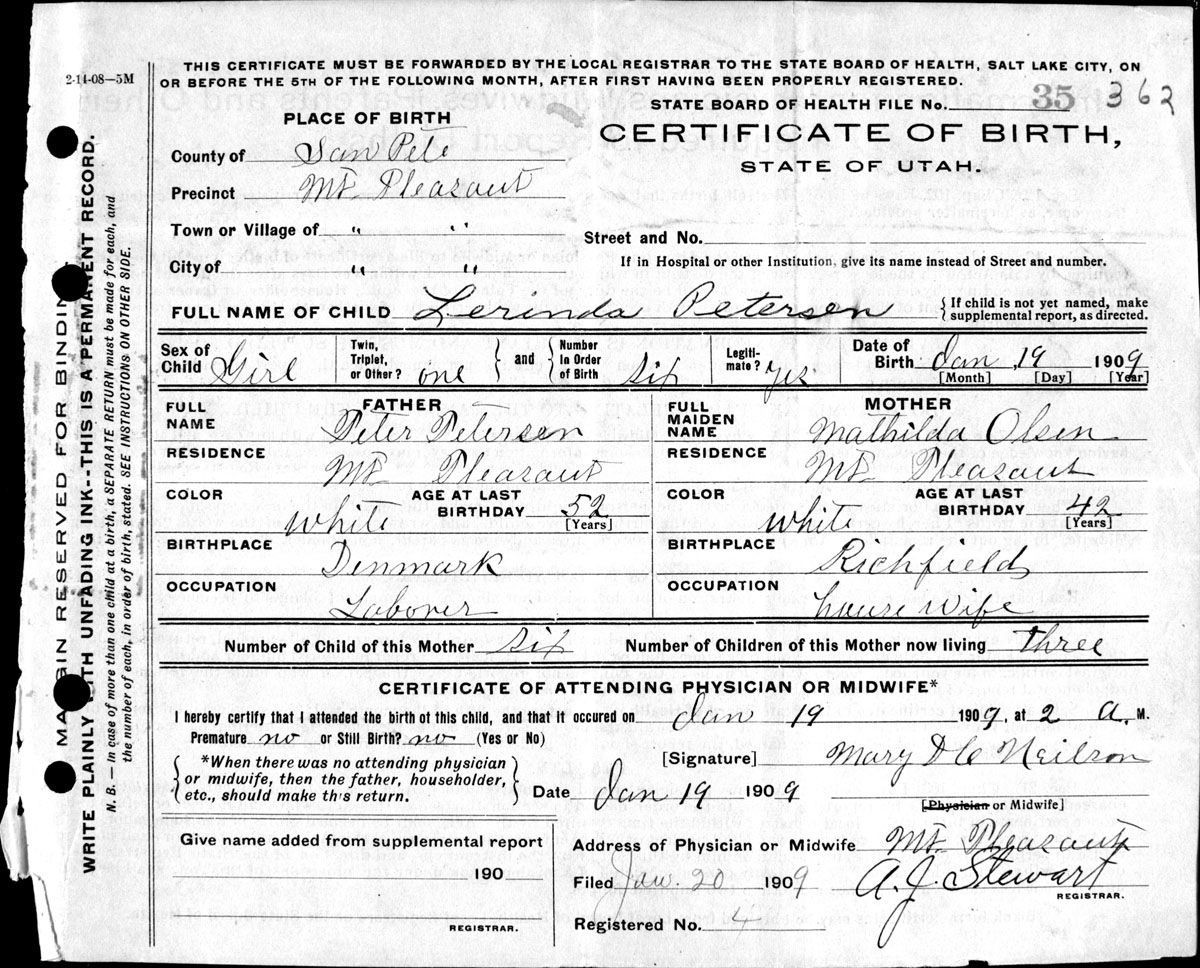 2-14-08—5M
THIS CERTIFICATE MUST BE FORWARDED BY THE LOCAL REGISTRAR TO THE STATE BOARD OF HEALTH, SALT LAKE CITY, ON
OR BEFORE THE 5TH OF THE FOLLOWING MONTH, AFTER FIRST HAVING BEEN PROPERLY REGISTERED.
STATE BOARD OF HEALTH FILE No. 35 362
PLACE OF BIRTH
CERTIFICATE OF BIRTH,
STATE OF UTAH.
County of San Pete
Precinct Mt Pleasant
Town or Village of " "
Street and No.
City of " "
If in Hospital or other Institution, give its name instead of Street and number.
FULL NAME OF CHILD Lerinda Petersen
{If child is not yet named, make
supplemental report, as directed.
Sex of Child Girl
Twin, Triplet, or Other? one } and { Number in Order of Birth six
Legiti-mate? yes
Date of Birth Jan 19 1909
[Month] [Day] [Year]
FATHER
FULL NAME Peter Petersen
RESIDENCE Mt Pleasant
COLOR white
AGE AT LAST BIRTHDAY 52 [Years]
BIRTHPLACE Denmark
OCCUPATION Laborer
MOTHER
FULL MAIDEN NAME Mathilda Olsen
RESIDENCE Mt Pleasant
COLOR white
AGE AT LAST BIRTHDAY 42 [Years]
BIRTHPLACE Richfield
OCCUPATION house wife
Number of Child of this Mother six
Number of Children of this Mother now living three
CERTIFICATE OF ATTENDING PHYSICIAN OR MIDWIFE*
I hereby certify that I attended the birth of this child, and that it occured on Jan 19 1909, at 2 A. M.
Premature no or Still Birth? no (Yes or No)
*When there was no attending physician
or midwife, then the father, householder,
etc., should make this return.
[Signature] Mary D C Neilson
Date Jan 19 1909
[Physician or Midwife]
Give name added from supplemental report
190
REGISTRAR.
Address of Physician or Midwife Mt Pleasant
Filed Jan. 20 1909 A. J. Stewart
REGISTRAR.
Registered No. 4
MARGIN RESERVED FOR BINDING
WRITE PLAINLY WITH UNFADING INK--THIS IS A PERMANENT RECORD.
N. B. — In case of more than one child at a birth, a SEPARATE RETURN must be made for each, and
the number of each, in order of birth, stated. SEE INSTRUCTIONS ON OTHER SIDE.